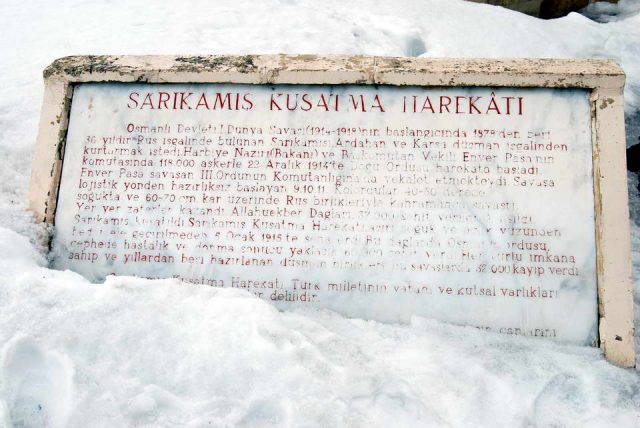 SARIKAMIŞ KUŞATMA HAREKÂTI
Osmanlı Devleti,I.Dünya Savaşı(1914-1918)'nın başlangıcında 1878'den beri
36 yıldır Rus işgalinde bulunan Sarıkamış,Ardahan ve Karsı düşman işgalinden
kurtarmak istedi.Harbiye Nazırı(Bakanı) ve Başkomutan Vekili Enver Paşa'nın
komutasında 118.000 askerle 22 Aralık 1914'te Doğu Ordusu harekata başladı.
Enver Paşa savaşan III.Ordunun Komutanlığınada vekalet etmekteydi.Savaşa
lojistik yönden hazırlıksız başlayan 9.10.11 Kolordular 40-50 derece
soğukta ve 60-70 cm kar üzerinde Rus birlikleriyle kahramanca savaştı
Yer yer zaferler kazandı Allahuekber Dağları 37.000 şehit
Sarıkamış kuşatıldı.Sarıkamış Kuşatma Harekatı soğuk yüzünden
geçirilmeden 6 Ocak 1915'te sona erdi Bu dağlarda Osmanlı ordusu,
cephede hastalık ve donma sonucu verdi.Her türlü imkana
sahip ve yıllardan beri hazırlanan düşman savaşlarda 32 000 kayıp verdi
Kuşatma Harekatı, Türk milletinin vatanı ve kutsal varlıkları
delilidir.